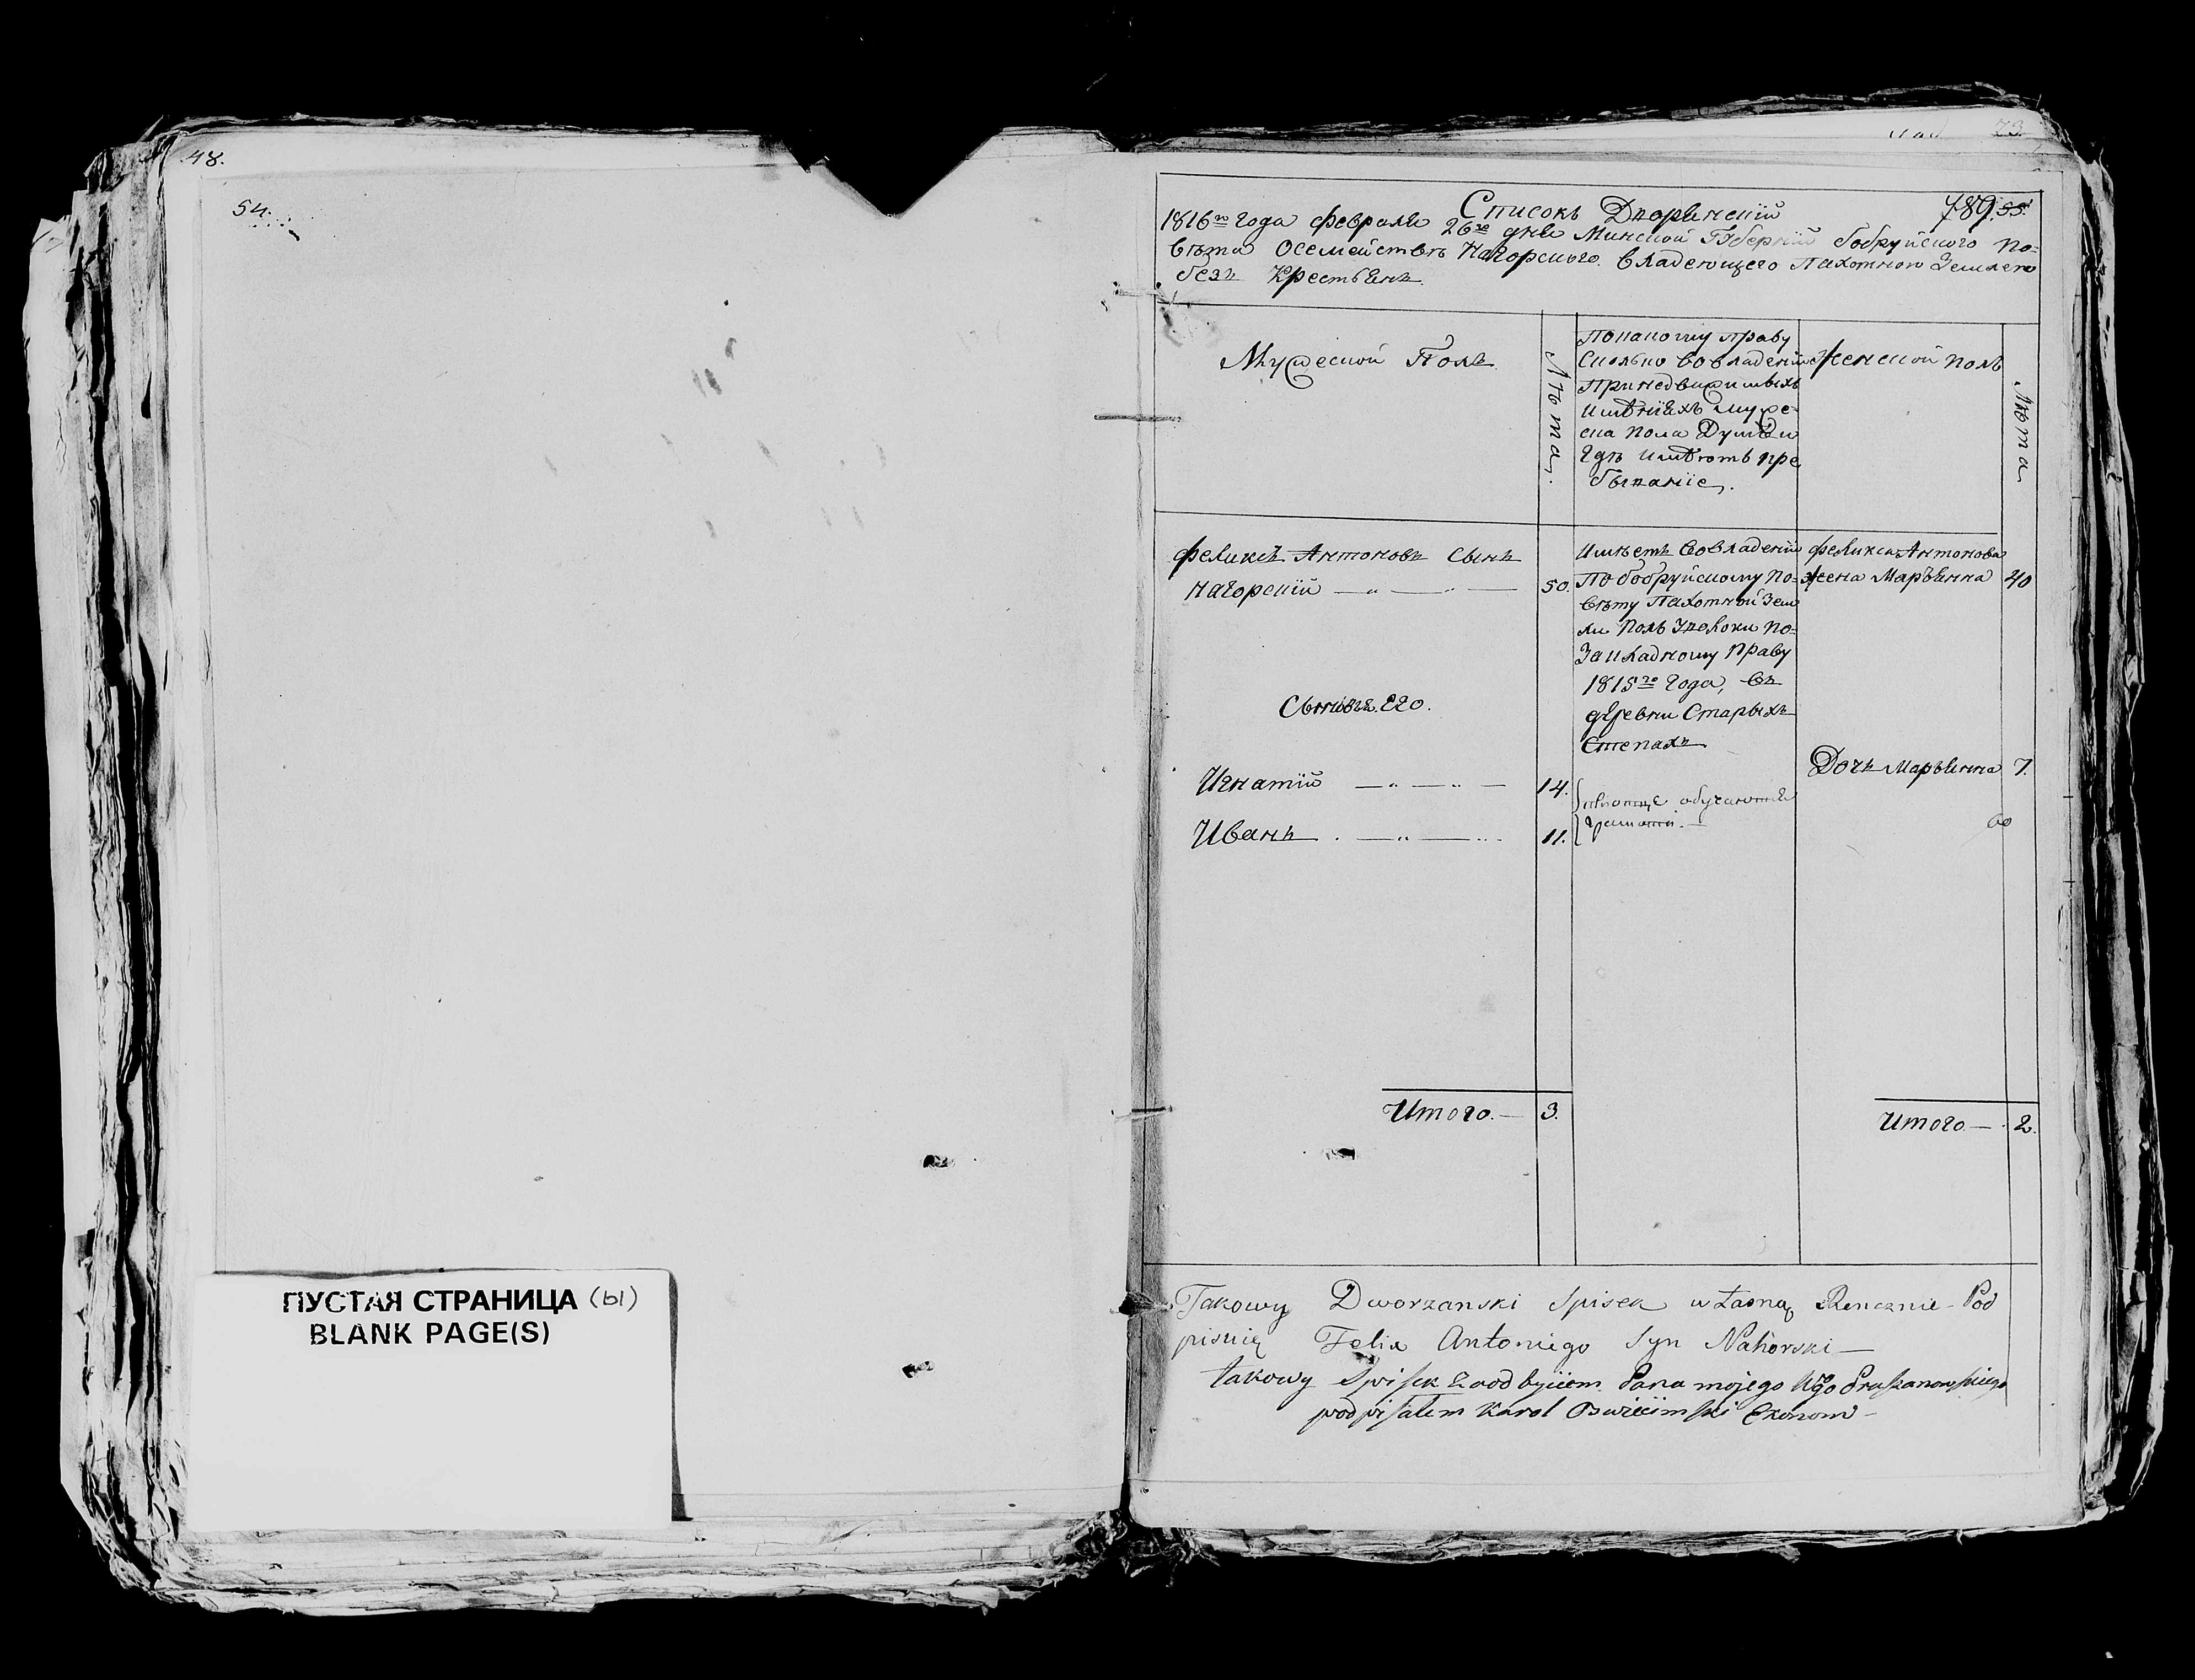 48.
54.
ПУСТАЯ СТРАНИЦА (ы)
BLANK PAGE(S)
73.
789. 55.
Списокъ Дворянскій
1816го года февраля 26го дня Минской Губерніи бобруйского по=
вѣта Осемействѣ Нагорского владеющего Пахотною Землею
безъ Крестьянъ.
Мужеской Полъ
Лѣта.
Покакому праву
Сколько вовладеніи
Принедвижимыхъ
имѣніяхъ муже-
ска пола Душъ и
гдѣ имѣютъ пре
бываніе.
Женской полъ
Лѣта
феликсъ Антоновъ Сынъ
Нагорскій 50.
Имѣетъ Вовладеніи
По бобруйскому по=
вѣту Пахотной Зем
ли Полъ Уволоки по=
Закладному праву
1815го Года, въ
деревни Старыхъ
Степахъ
феликса Антонова
жена Марьянна 40
Сыновья Его.
Дочь Марьянна 7.
Игнатій 14.
Иванъ 11.
обучаются
грамоти.
Итого. 3.
Итого 2.
Takowy Dworzanski Spisek własną Rencznie Pod
pisuię Felix Antoniego Syn Nahorski
takowy Spisek za odbyciem Pana mojego
podpisałem Karol Ekonom